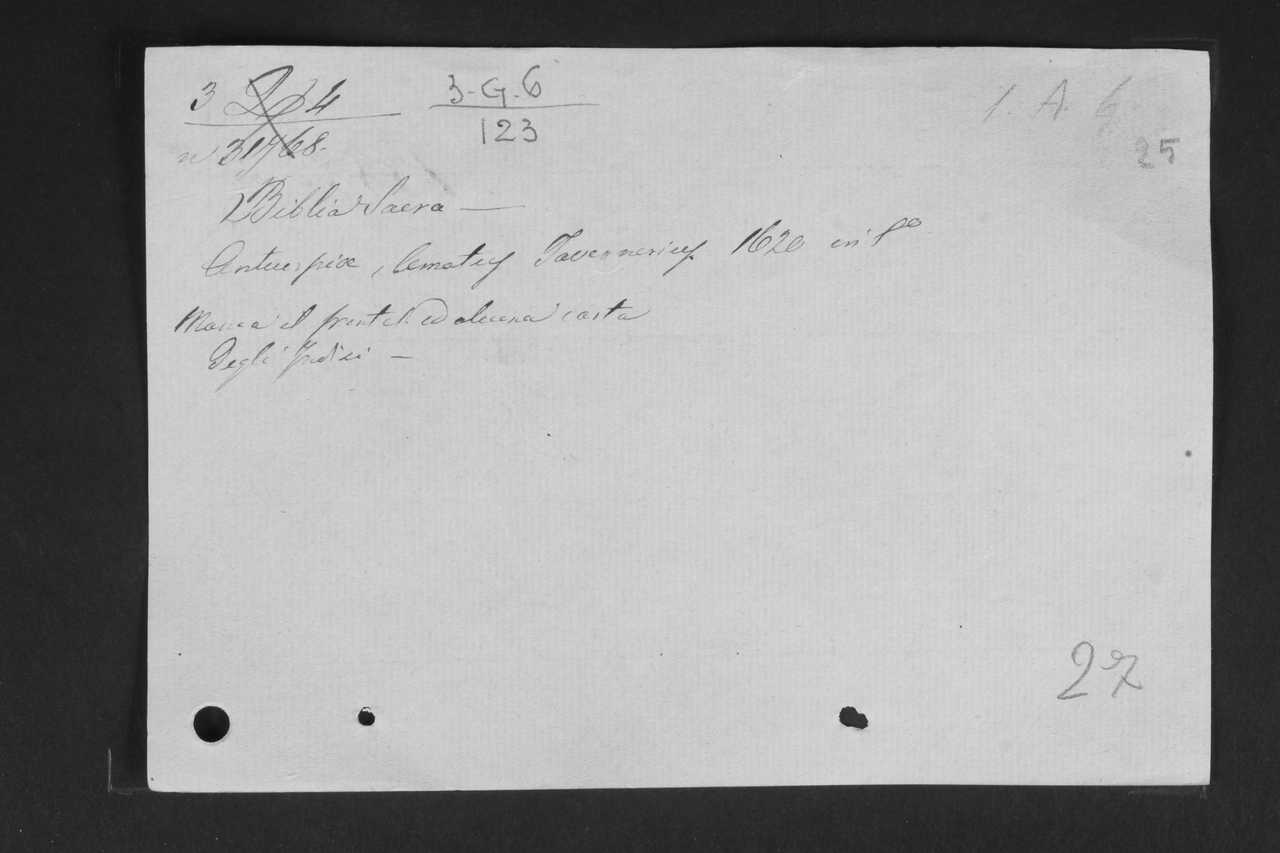 3 D 4 3-G-6 1. A. 6
n° 31768. 123 25
Biblia Sacra —
Antuerpiae, Amatus Tavernerius 1620 in f°
Manca il front. ed alcuna carta
degli Indici —
27